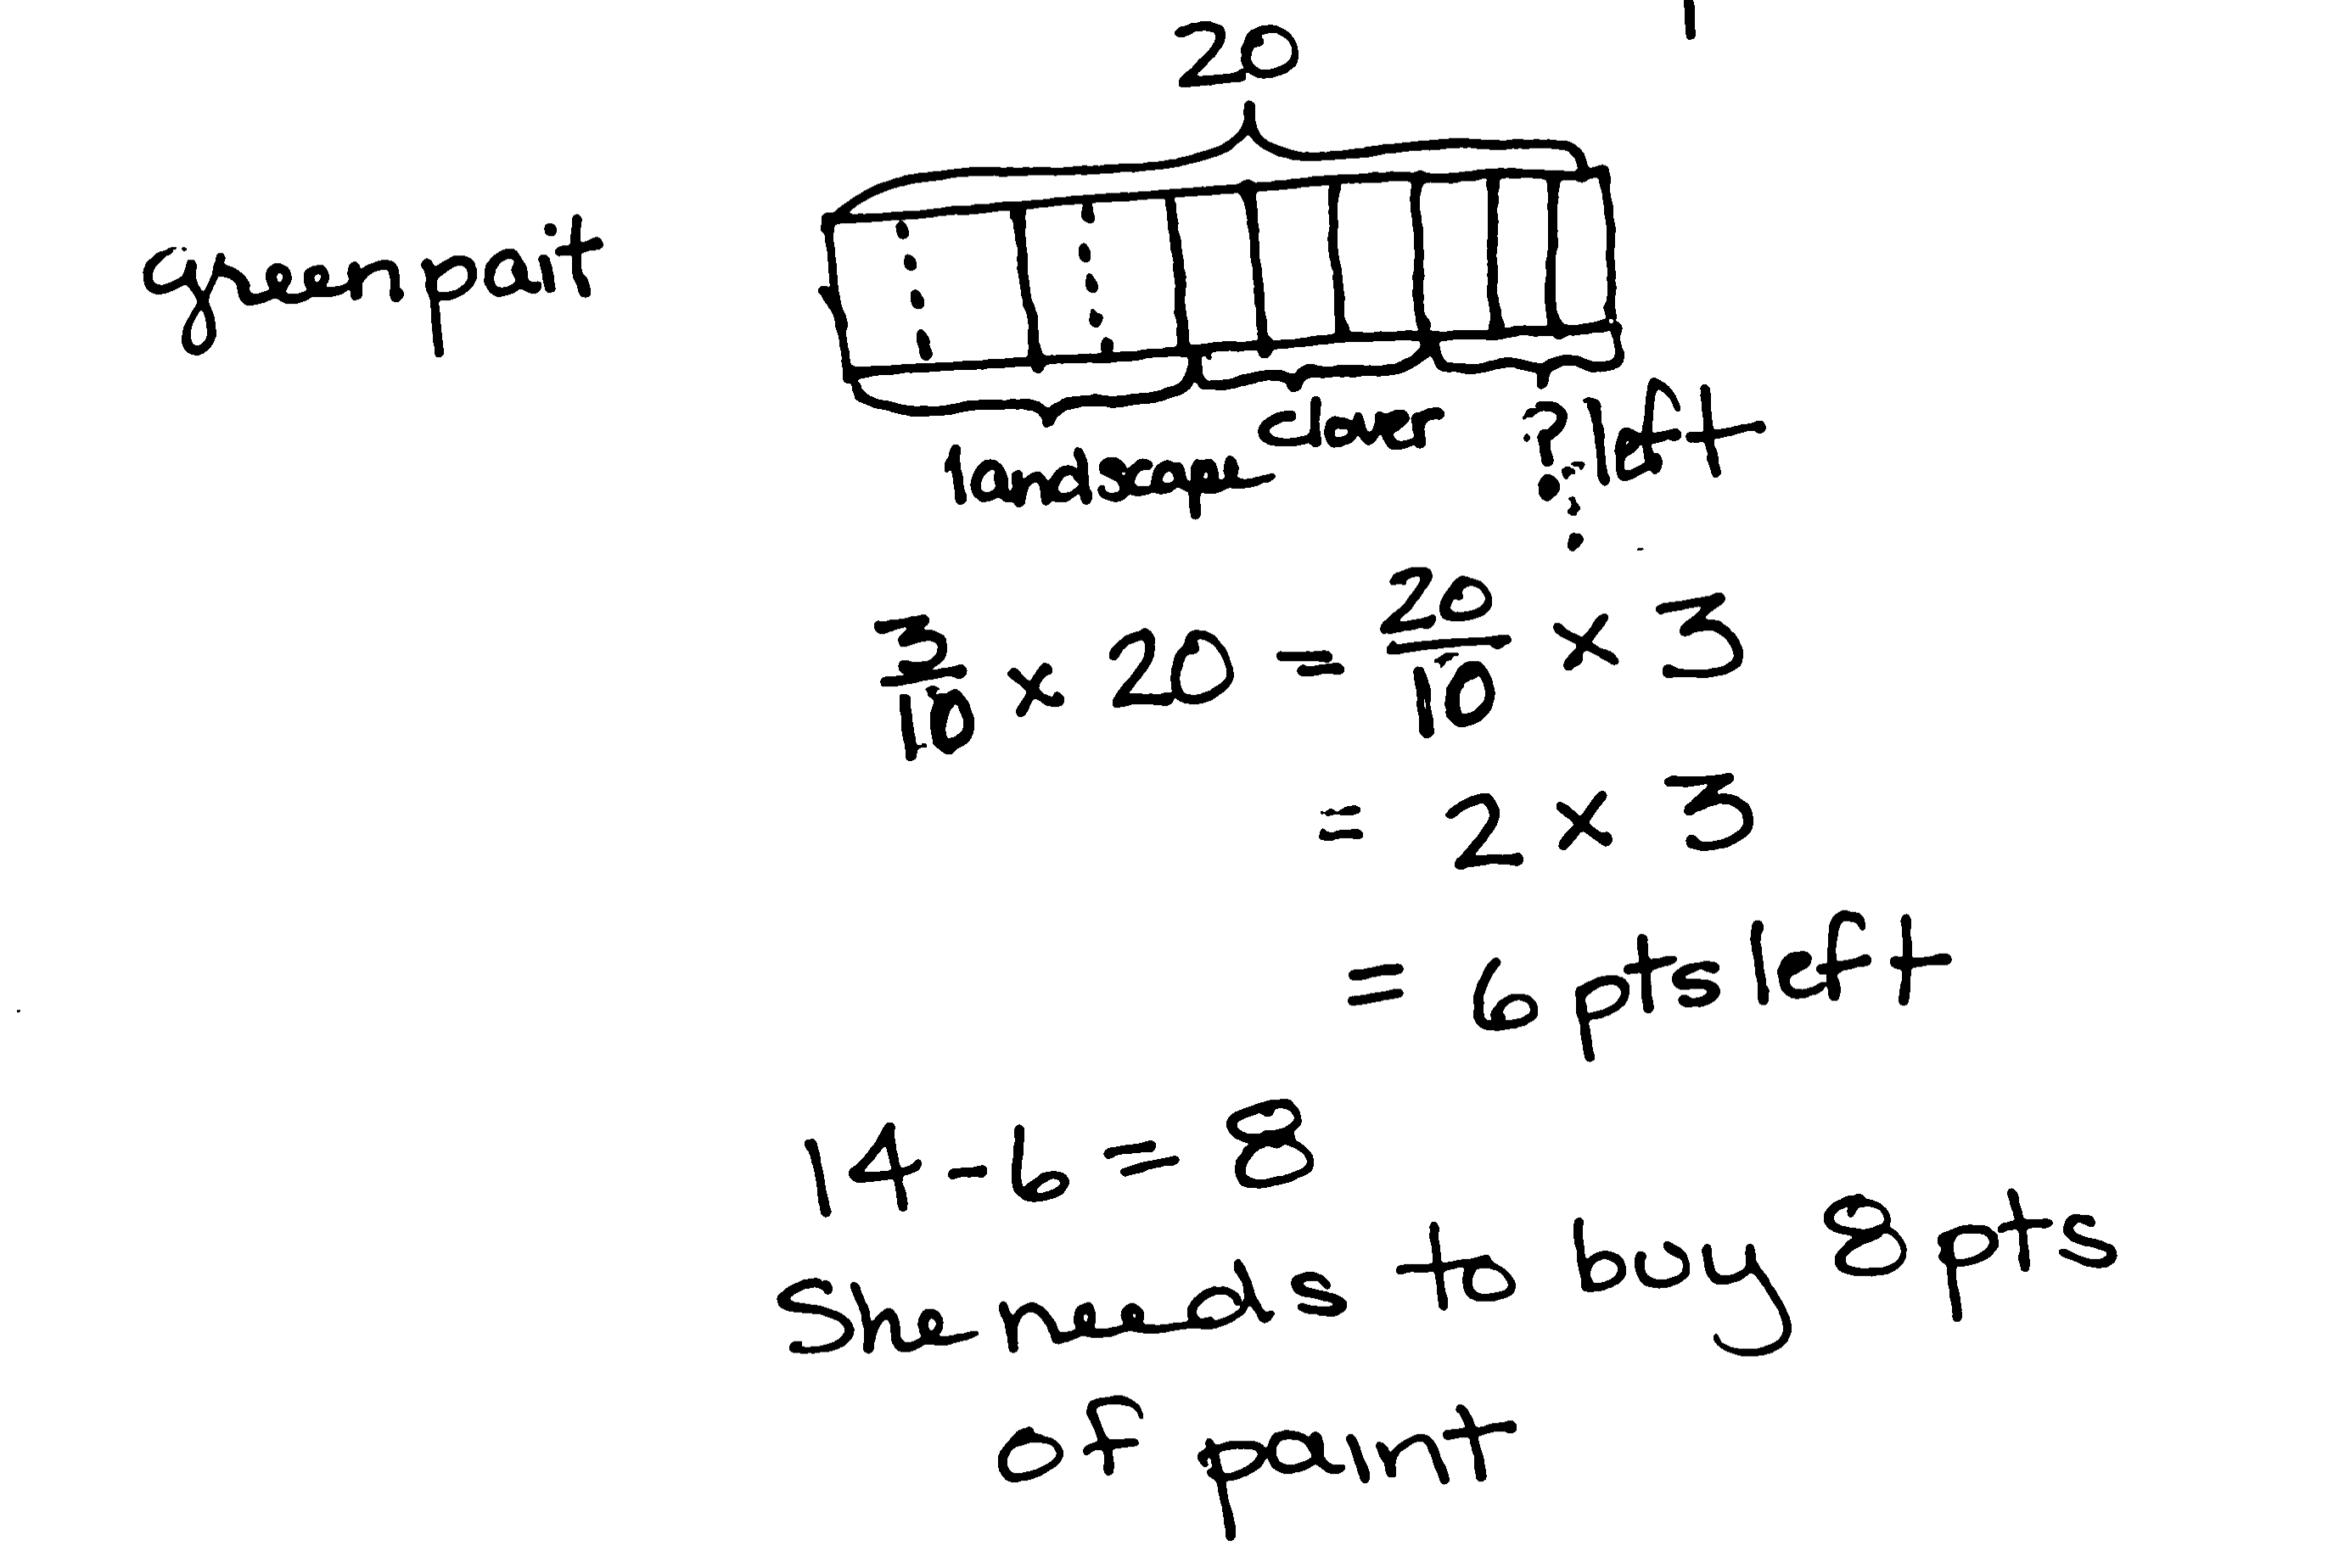 20
green pait
landscape clover ? left
3/10 x 20 = 20/10 x 3
= 2 x 3
= 6 pts left
14 - 6 = 8
She needs to buy 8 pts
of paint